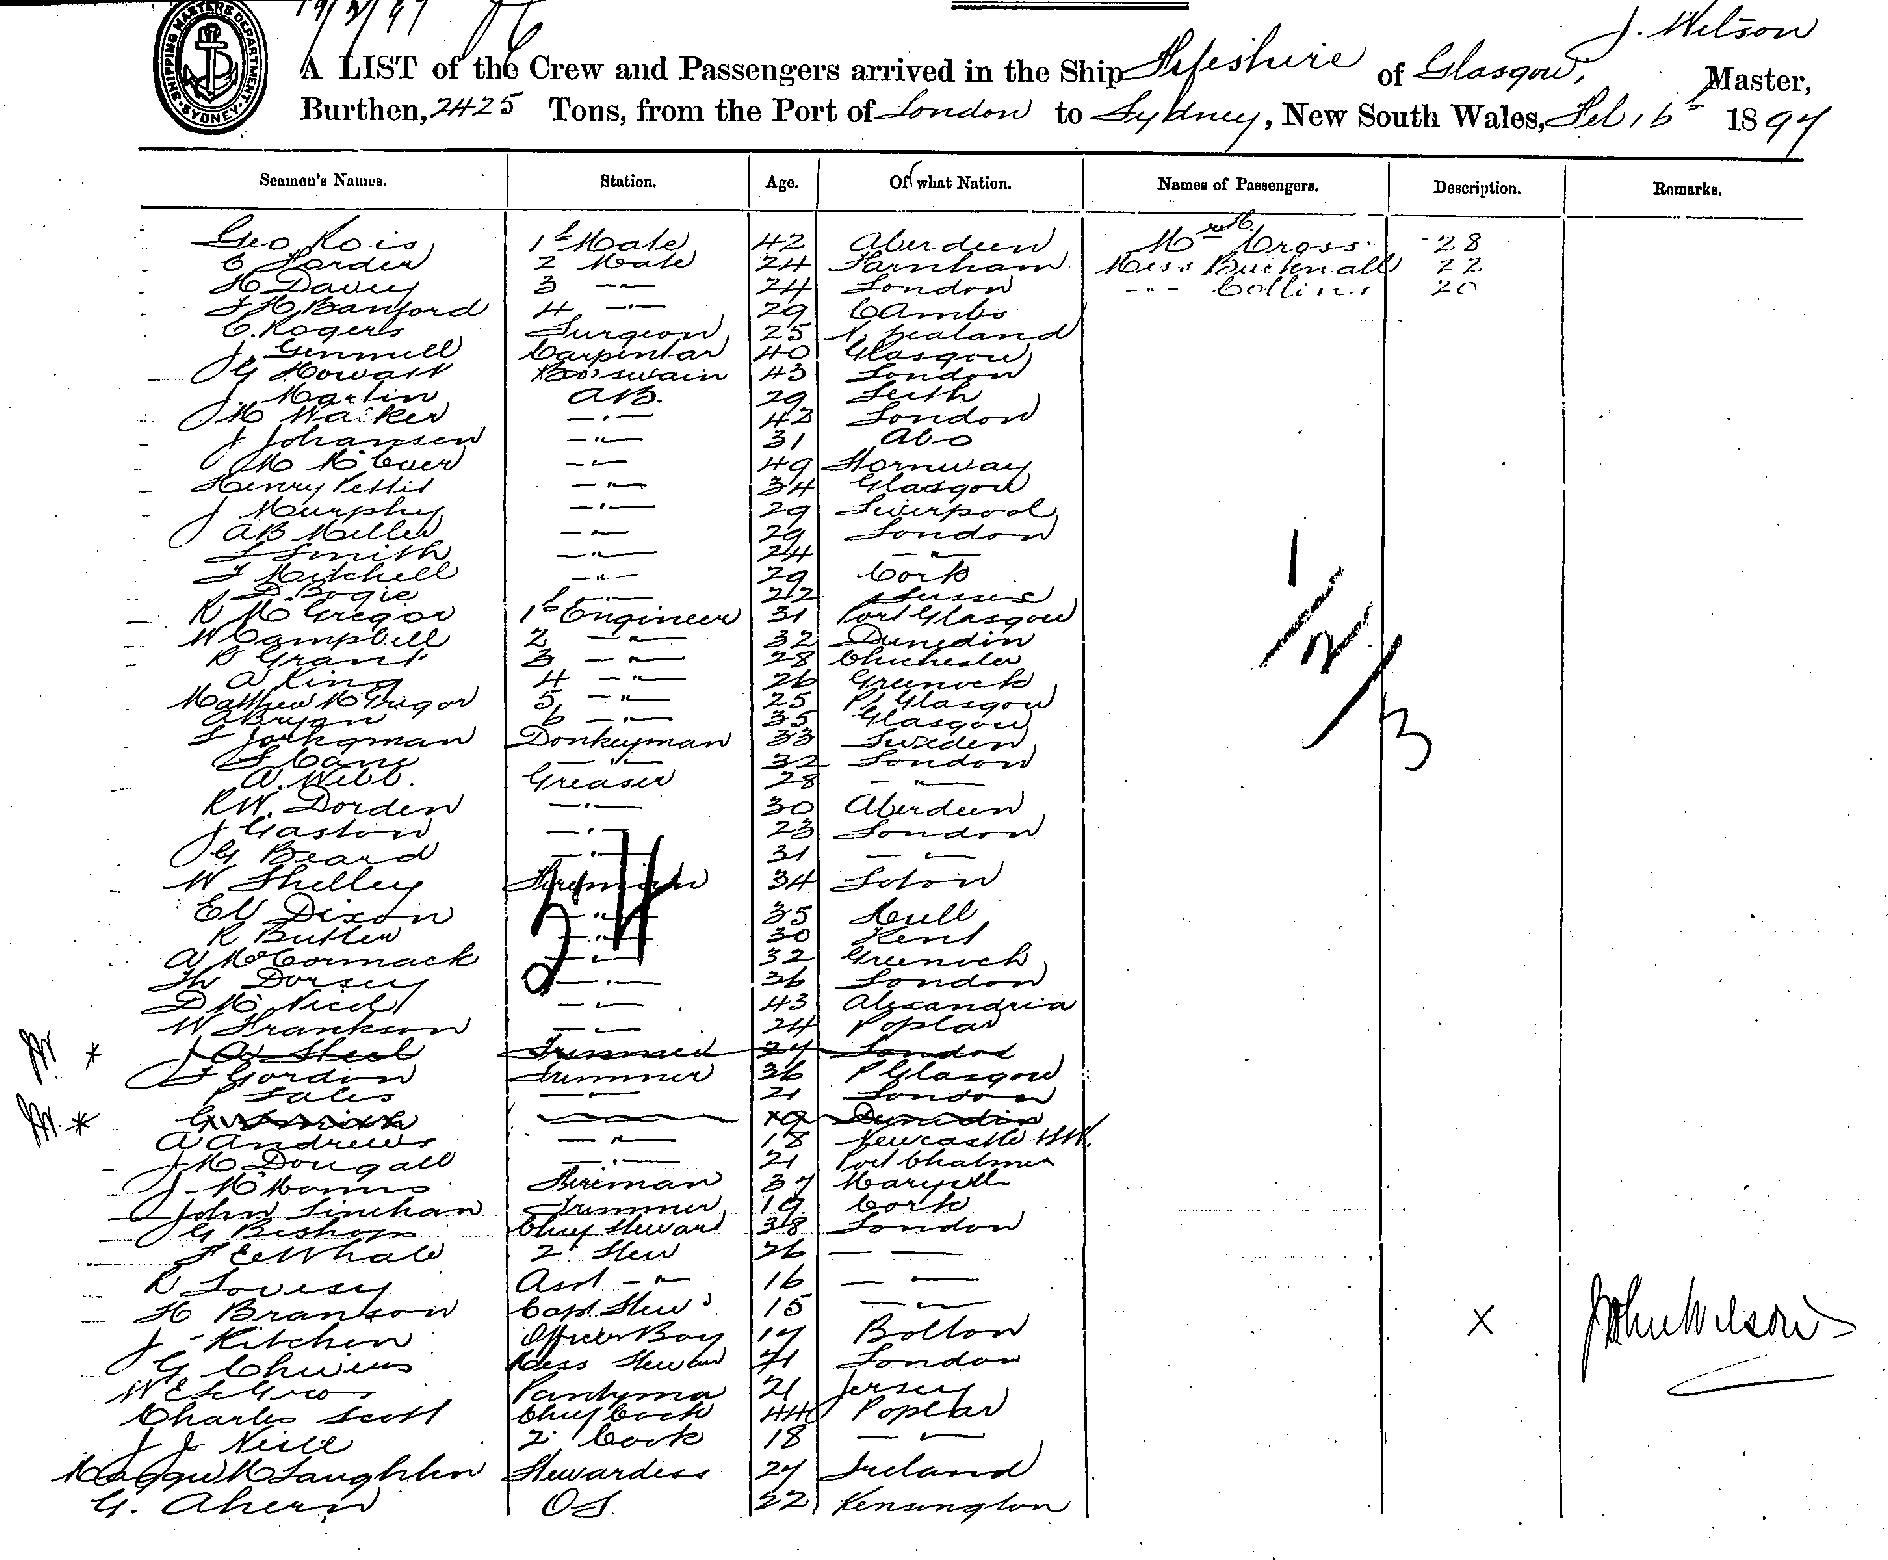 19/2/97
SHIPPING MASTERS DEPARTMENT SYDNEY
J. Wilson
A LIST of the Crew and Passengers arrived in the Ship Fifeshire of Glasgow, Master,
Burthen, 2425 Tons, from the Port of London to Sydney, New South Wales, Feb 16th 1897
Seamen's Names. Station. Age. Of what Nation. Names of Passengers. Description. Remarks.
Geo Rois 1st Mate 42 Aberdeen Mr Cross 28
C Harder 2 Mate 24 Farnham Miss Bucknall 22
H Davey 3 -"- 24 London -"- Collins 20
F H Banford 4 -"- 29 Cambs
C. Rogers Surgeon 25 N Zealand
J Gemmell Carpintar 40 Glasgow
G Howatt Bo'swain 43 London
J. Martin AB. 29 Leith
H Walker -"- 42 London
J Johansen -"- 31 Abo
M McIver -"- 49 Stornway
Henry Pettit -"- 34 Glasgow
J Murphy -"- 29 Liverpool
AB Miller -"- 29 London
F Smith -"- 24 -"-
F Mitchell -"- 29 Cork
D. Bogie -"- 22 Sussex
R McGregor 1st Engineer 31 Port Glasgow
W Campbell 2 -"- 32 Dunedin
R Grant 3 -"- 28 Chichester
A King 4 -"- 26 Greenock
Matthew McGregor 5 -"- 25 Pt Glasgow
A Bryan 6 -"- 35 Glasgow
Donkeyman 33 Sweden
S Cane -"- 32 London
A. Webb. Greaser 28 -"-
R W. Dorden -"- 30 Aberdeen
J Gaston -"- 23 London
G Beard -"- 31 -"-
W Shelley Fireman 34 Soton
E W Dixon -"- 35 Hull
R Butler -"- 30 Kent
A McCormack -"- 32 Greenock
Th Dorsey -"- 36 London
D McNicol -"- 43 Alexandria
W Frankson -"- 24 Poplar
J A Steel Trimmer 24 London
F Gordon Trimmer 36 P Glasgow
P Sales -"- 21 London
G Smith -"- 19 Dunedin
A Andrews -"- 18 Newcastle NSW.
J McDougall -"- 21 Port Chalmers
J McManus Fireman 37 Maryhill
John Linehan Trimmer 19 Cork
G Bishop Chief Steward 38 London
F E Whale 2 Stew 26 -"-
R Lovesy Asst -"- 16 -"-
H Branson Capt. Stewd 15 -"-
J Kitchen Officers Boy 17 Bolton
G Chivers Mess Steward 21 London
W E LeGros Pantryman 21 Jersey
Charles Scott Chief Cook 44 Poplar
J J Neill 2 Cook 18 -"-
Maggie McLaughlin Stewardess 27 Ireland
G. Ahern OS. 22 Kensington
1/2/3
24
X
John Wilson